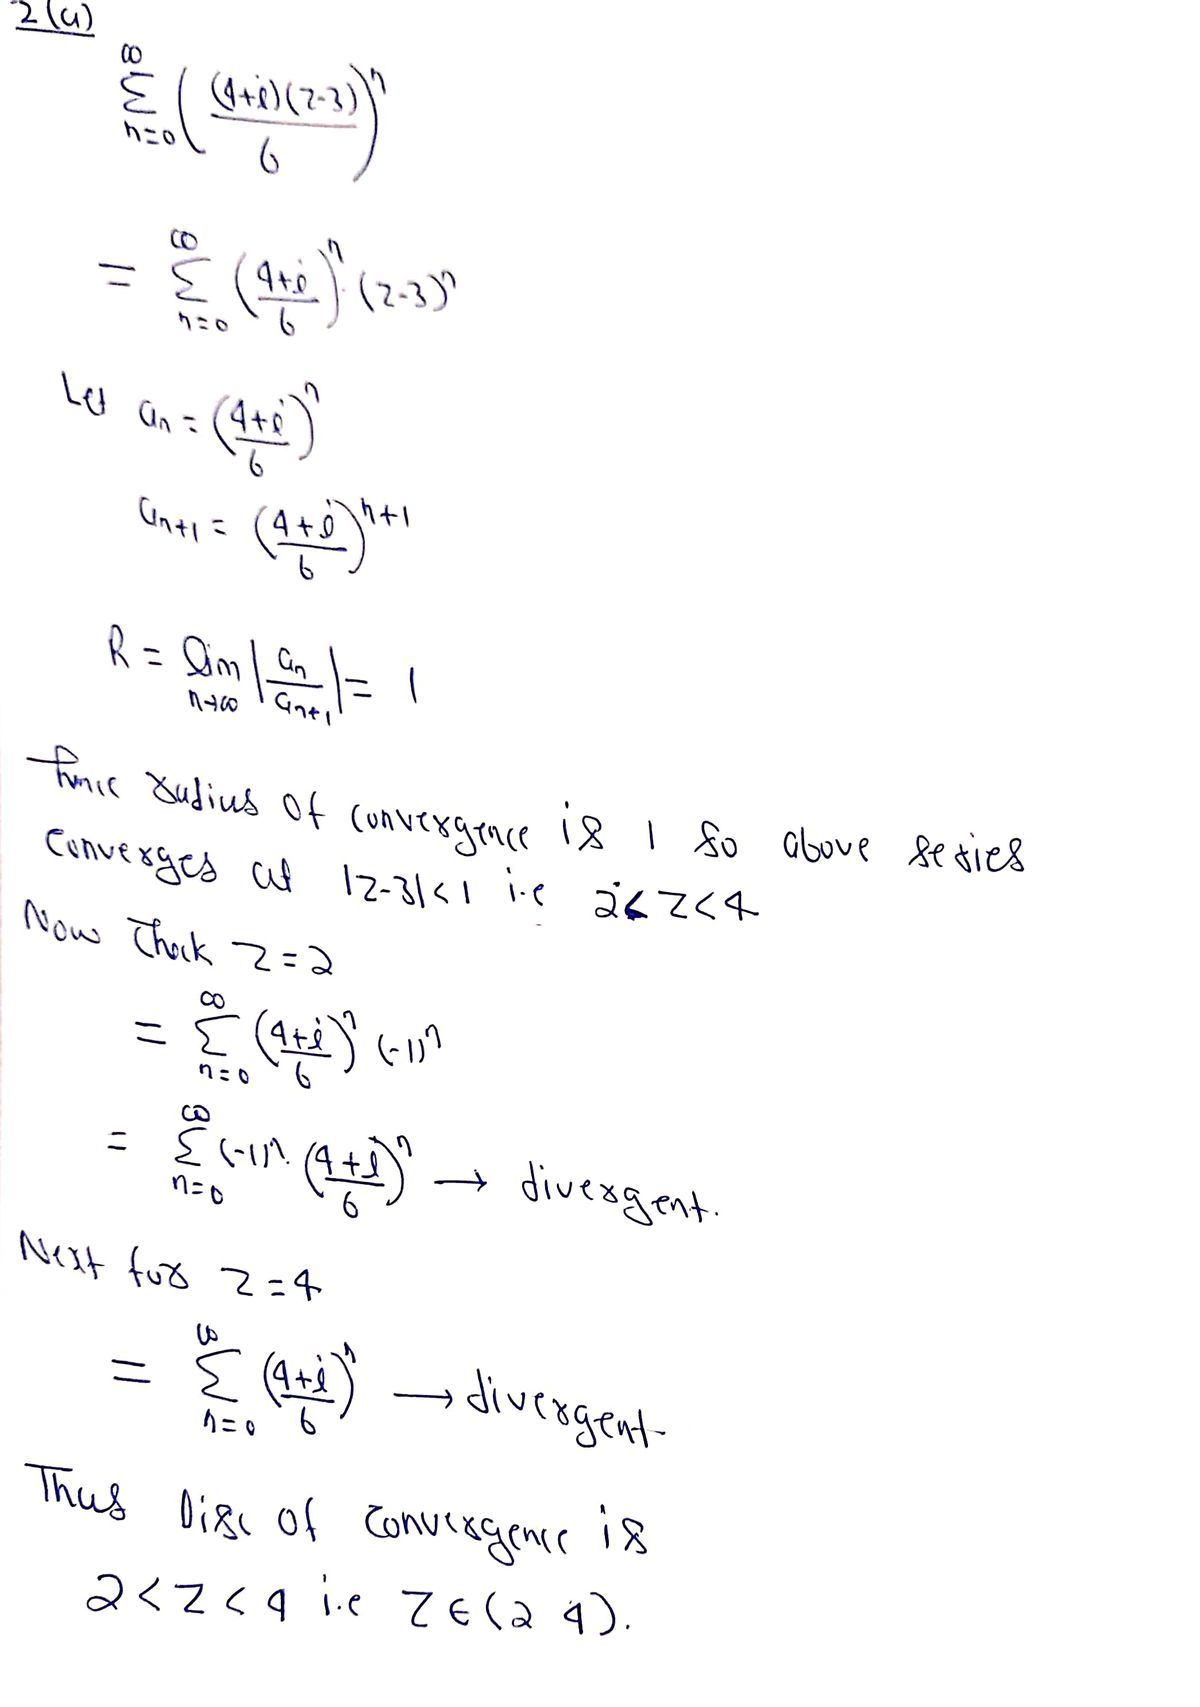 2(a)
∞ Σ n=0 ( (4+i)(z-3) / 6 )^n
= ∞ Σ n=0 ( 4+i / 6 )^n · (z-3)^n
Let a_n = ( 4+i / 6 )^n
a_{n+1} = ( 4+i / 6 )^{n+1}
R = lim n→∞ | a_n / a_{n+1} | = 1
Hence radius of convergence is 1 so above series
converges at |z-3|<1 i.e 2<z<4
Now Check z=2
= ∞ Σ n=0 ( 4+i / 6 )^n (-1)^n
= ∞ Σ n=0 (-1)^n · ( 4+i / 6 )^n → divergent.
Next for z=4
= ∞ Σ n=0 ( 4+i / 6 )^n → divergent
Thus Disc of convergence is
2<z<4 i.e z∈(2 4).